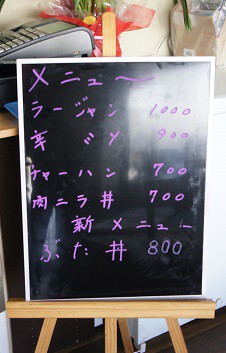 メニュ〜
ラージャン 1000
辛ミソ 900
チャーハン 700
肉ニラ丼 700
新メニュー
ぶた丼 800